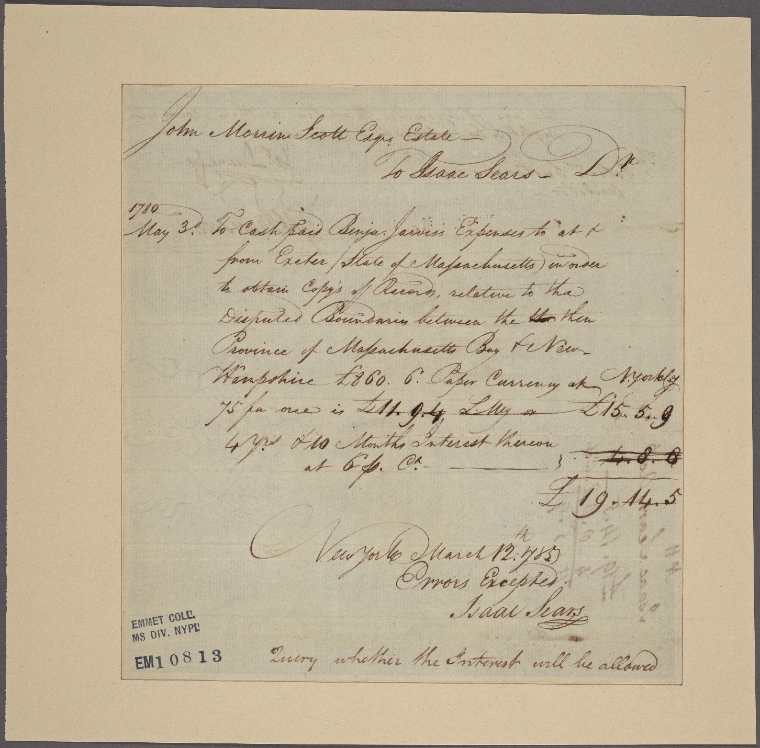 John Morrin Scott Esqr. Estate —
To Isaac Sears — Dr.
1780
May 3d. To Cash paid Benja: Jarviss Expenses to at &
from Exeter (State of Massachusetts) in order
to obtain Copy's of Records, relative to the
Disputed Boundaries between the then
Province of Massachusetts Bay & New-
Hampshire £860. 6. Paper Currency at NYorkCy
75 for one is £11.9.4 LMy or £15.5.9
4 Yrs & 10 Months Interest thereon
at 6 p. Ct. — } 4.8.8
£19.14.5
New York March 12th. 1785
Errors Excepted.
Isaac Sears
Query whether the Interest will be allowed
EMMET COLL.
MS DIV. NYPL
EM10813